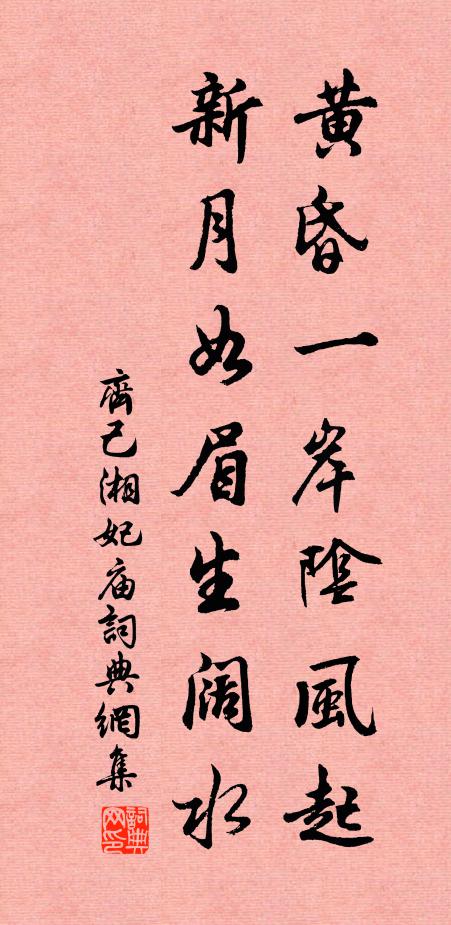 黄昏一岸陰風起
新月如眉生闊水
齊己湘妃庙詞典網集
詞典网印